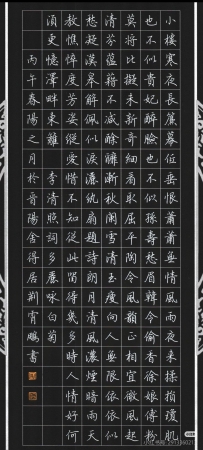 小樓寒夜長簾幕低垂恨蕭蕭無情風雨夜來揉損瓊肌
也不似貴妃醉臉也不似孫壽愁眉韓令偷香徐娘傅粉
莫將比擬未新奇細看取屈平陶令風韻正相宜微風起
清芬醞藉不減酴醾漸秋闌雪清玉瘦向人無限依依似
愁凝漢皋解佩似淚灑紈扇題詩朗月清風濃煙暗雨天
教憔悴度芳姿縱愛惜不知從此留得幾多時人情好何
須更憶澤畔東籬 李清照詞詠白菊
丙午春陽之月於晉陽舍得居荊宵鵬書